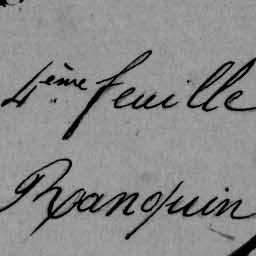 4ème feuille
Ranquin